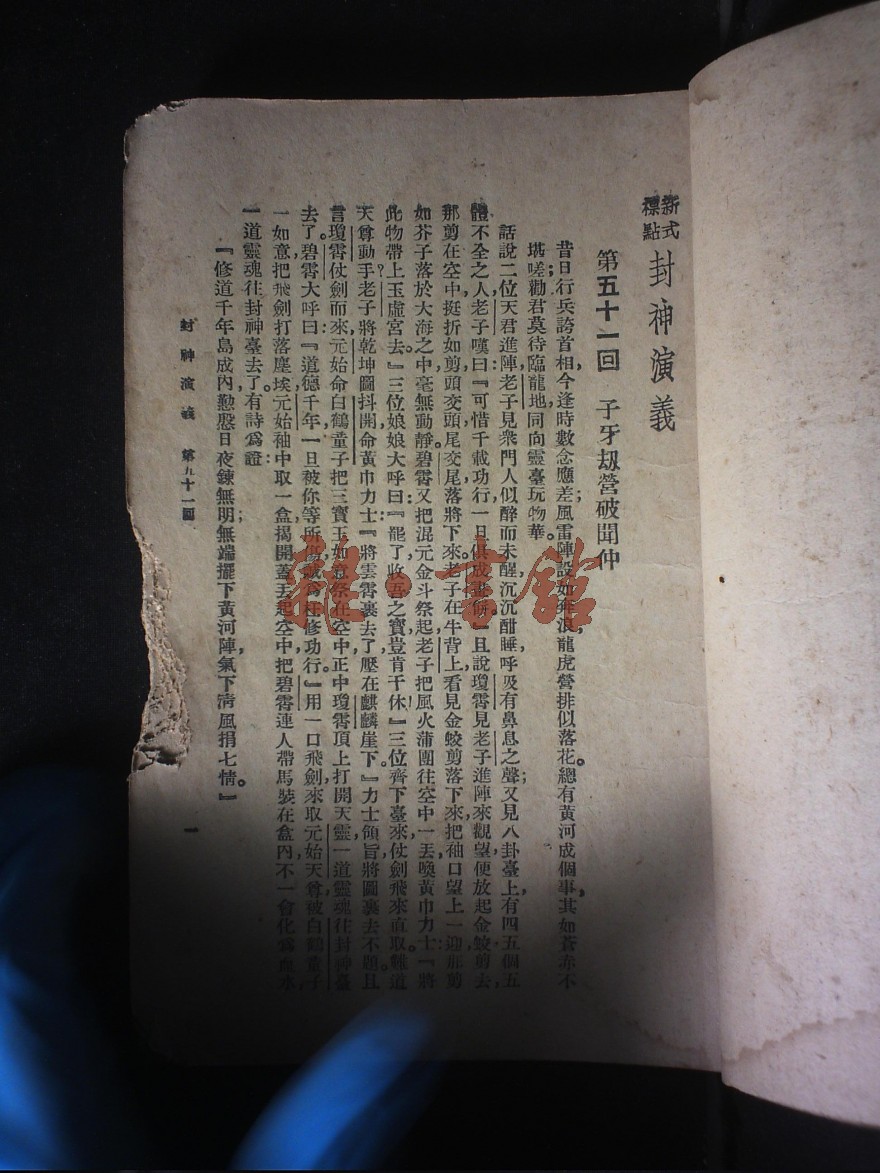 新式
標點
封神演義
第五十一回　子牙刼營破聞仲
昔日行兵誇首相，今逢時數念應差；風雷陣設如奔浪，龍虎營排似落花。總有黃河成個事，其如蒼赤不
堪嗟；勸君莫待臨龍地，同向靈臺玩物華。
話說二位天君進陣，老子見衆門人似醉而未醒，沉沉酣睡，呼吸有鼻息之聲；又見八卦臺上有四五個五
體不全之人，老子嘆曰：『可惜千載功行，一旦俱成畫餅。』且說瓊霄見老子進陣來觀望，便放起金蛟剪去，
那剪在空中，挺折如剪，頭交頭，尾交尾，落將下來。老子在牛背上看見金蛟剪落下來，把袖口望上一迎，那剪
如芥子落於大海之中，毫無動靜。碧霄又把混元金斗祭起，老子把風火蒲團往空中一丟，喚黃巾力士：『將
此物帶上玉虛宮去。』三位娘娘大呼曰：『罷了，收吾之寶，豈肯干休！』三位齊下臺來，仗劍飛來直取。難道
天尊動手？老子將乾坤圖抖開，命黃巾力士：『將雲霄裹去了，壓在麒麟崖下。』力士領旨，將圖裹去不題。且
言瓊霄仗劍而來，元始命白鶴童子把三寶玉如意祭在空中，正中瓊霄頂上，打開天靈，一道靈魂往封神臺
去了。碧霄大呼曰：『道德千年，一旦被你等所傷，誠爲枉修功行。』用一口飛劍，來取元始天尊，被白鶴童子
一如意，把飛劍打落塵埃，元始袖中取一盒，揭開蓋，丟起空中，把碧霄連人帶馬裝在盒內，不一會化爲血水，
一道靈魂，往封神臺去了。有詩爲證：
『修道千年島成內，懃慇日夜鍊無明；無端擺下黃河陣，氣下淸風捐七情。』
封神演義　第五十一回
一
雜·書館